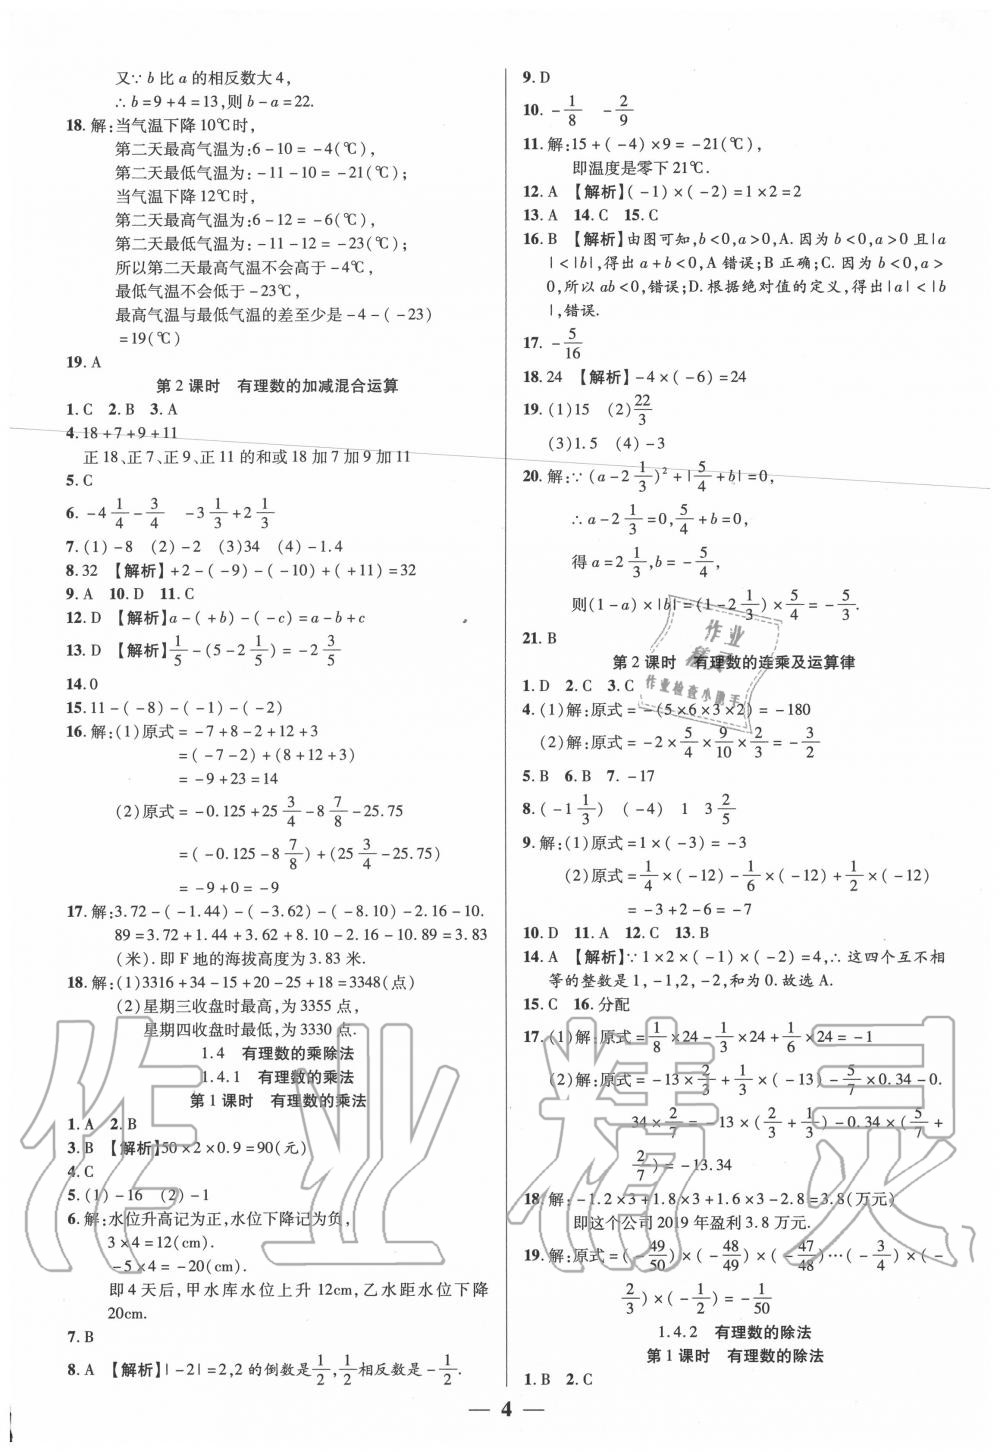 又∵b 比 a 的相反数大 4,
∴b=9+4=13,则 b-a=22.
18.解:当气温下降 10℃时,
第二天最高气温为:6-10=-4(℃),
第二天最低气温为:-11-10=-21(℃);
当气温下降 12℃时,
第二天最高气温为:6-12=-6(℃),
第二天最低气温为:-11-12=-23(℃);
所以第二天最高气温不会高于-4℃,
最低气温不会低于-23℃,
最高气温与最低气温的差至少是-4-(-23)
=19(℃)
19. A
第 2 课时 有理数的加减混合运算
1. C 2. B 3. A
4. 18+7+9+11
正 18、正 7、正 9、正 11 的和或 18 加 7 加 9 加 11
5. C
6. -4 1/4 - 3/4 -3 1/3 +2 1/3
7. (1)-8 (2)-2 (3)34 (4)-1.4
8. 32 【解析】+2-(-9)-(-10)+(+11)=32
9. A 10. D 11. C
12. D 【解析】a-(+b)-(-c)=a-b+c
13. D 【解析】1/5-(5-2 1/5)=-2 3/5
14. 0
15. 11-(-8)-(-1)-(-2)
16.解:(1)原式=-7+8-2+12+3
=(-7-2)+(8+12+3)
=-9+23=14
(2)原式=-0.125+25 3/4-8 7/8-25.75
=(-0.125-8 7/8)+(25 3/4-25.75)
=-9+0=-9
17.解:3.72-(-1.44)-(-3.62)-(-8.10)-2.16-10.
89=3.72+1.44+3.62+8.10-2.16-10.89=3.83
(米).即 F 地的海拔高度为 3.83 米.
18.解:(1)3316+34-15+20-25+18=3348(点)
(2)星期三收盘时最高,为 3355 点,
星期四收盘时最低,为 3330 点.
1.4 有理数的乘除法
1.4.1 有理数的乘法
第 1 课时 有理数的乘法
1. A 2. B
3. B 【解析】50×2×0.9=90(元)
4. C
5. (1)-16 (2)-1
6.解:水位升高记为正,水位下降记为负,
3×4=12(cm).
-5×4=-20(cm).
即 4 天后,甲水库水位上升 12cm,乙水距水位下降
20cm.
7. B
8. A 【解析】|-2|=2,2 的倒数是 1/2,1/2 相反数是-1/2.
9. D
10. -1/8 -2/9
11.解:15+(-4)×9=-21(℃),
即温度是零下 21℃.
12. A 【解析】(-1)×(-2)=1×2=2
13. A 14. C 15. C
16. B 【解析】由图可知,b<0,a>0,A.因为 b<0,a>0 且|a
|<|b|,得出 a+b<0,A 错误;B 正确;C.因为 b<0,a>
0,所以 ab<0,错误;D.根据绝对值的定义,得出|a|<|b
|,错误.
17. -5/16
18. 24 【解析】-4×(-6)=24
19. (1)15 (2)22/3
(3)1.5 (4)-3
20.解:∵(a-2 1/3)²+|5/4+b|=0,
∴a-2 1/3=0,5/4+b=0,
得 a=2 1/3,b=-5/4,
则(1-a)×|b|=(1-2 1/3)×5/4=-5/3.
21. B
作业
精灵
作业检查小助手
第 2 课时 有理数的连乘及运算律
1. D 2. C 3. C
4. (1)解:原式=-(5×6×3×2)=-180
(2)解:原式=-2×5/4×9/10×2/3=-3/2
5. B 6. B 7. -17
8. (-1 1/3) (-4) 1 3 2/5
9.解:(1)原式=1×(-3)=-3
(2)原式=1/4×(-12)-1/6×(-12)+1/2×(-12)
=-3+2-6=-7
10. D 11. A 12. C 13. B
14. A 【解析】∵1×2×(-1)×(-2)=4,∴这四个互不相
等的整数是 1,-1,2,-2,和为 0.故选 A.
15. C 16.分配
17. (1)解:原式=1/8×24-1/3×24+1/6×24=-1
(2)解:原式=-13×2/3+1/3×(-13)-5/7×0.34-0.
34×2/7=-13×(2/3+1/3)-0.34×(5/7+
2/7)=-13.34
18 解:-1.2×3+1.8×3+1.6×3-2.8=3.8(万元)
即这个公司 2019 年盈利 3.8 万元.
19.解:原式=(-49/50)×(-48/49)×(-47/48)…(-3/4)×(-
2/3)×(-1/2)=-1/50
1.4.2 有理数的除法
第 1 课时 有理数的除法
1. B 2. C
— 4 —
作业精灵